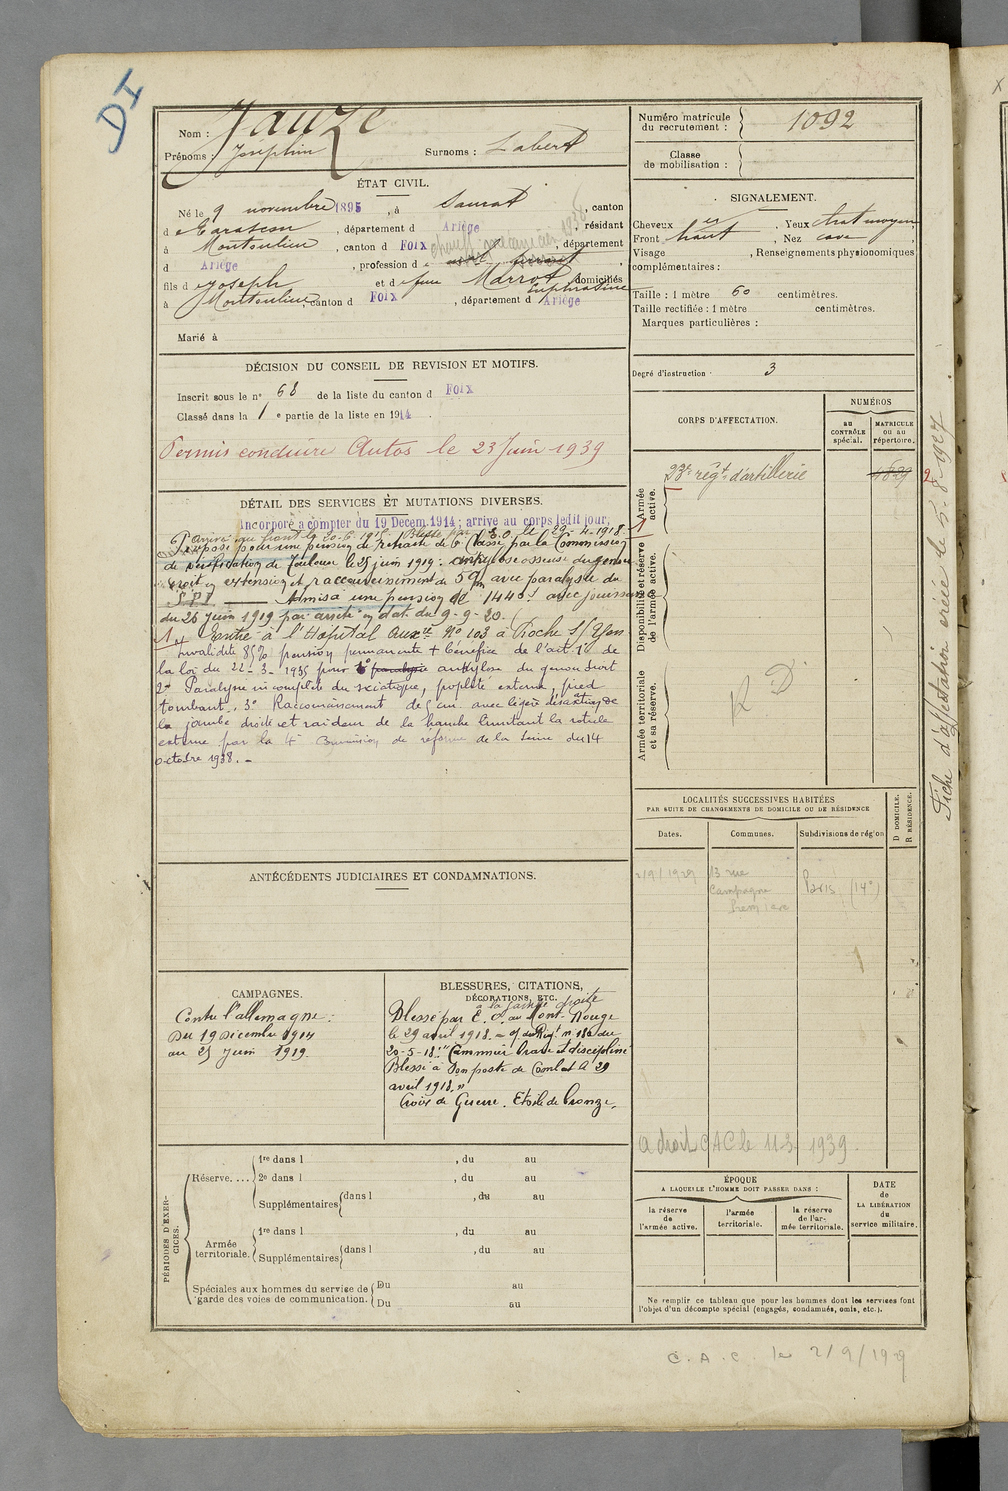 DI
Nom : Jauze
Prénoms : Joséphin Surnoms : Labert
Numéro matricule du recrutement : 1092
Classe de mobilisation :
ÉTAT CIVIL.
Né le 9 novembre 1895, à Saurat, canton
d e Tarascon, département d Ariège, résidant
à Montoulieu, canton d Foix, département
d Ariège, profession d
fils d e Joseph et d e feue Marrot Euphrasine domiciliés
à Montoulieu canton d Foix, département d Ariège
Marié à
SIGNALEMENT.
Cheveux Yeux chat moyen
Front haut, Nez cave
Visage , Renseignements physionomiques
complémentaires :
Taille : 1 mètre 60 centimètres.
Taille rectifiée : 1 mètre centimètres.
Marques particulières :
Degré d'instruction : 3
DÉCISION DU CONSEIL DE REVISION ET MOTIFS.
Inscrit sous le n° 68 de la liste du canton d Foix
Classé dans la 1 e partie de la liste en 1914.
Permis conduire Autos le 23 Juin 1939
DÉTAIL DES SERVICES ET MUTATIONS DIVERSES.
Incorporé à compter du 19 Decem.1914; arrive au corps ledit jour,
Blessé par E.O. le 29-4-1918
Proposé pour une pension de retraite de 6e Classe par la Commission
de vérification de Toulouse le 25 juin 1919: ankylose osseuse du genou
droit en extension et raccourcissement de 5 cm avec paralysie du
S.P.I Admis à une pension de 1440 f avec jouissance
du 26 juin 1919 par arrêté en dat. du 9-9-20.
1 Entré à l'Hôpital auxre N° 103 à Roche S/ Yon
Invalidité 85% pension permanente + bénéfice de l'art 10 de
la loi du 22-3-1935 pour 1° paralysie ankylose du genou droit
2° Paralysie incomplète du sciatique, poplité externe, pied
tombant. 3° Raccourcissement de 5 cm avec légère désaxation de
la jambe droite et raideur de la hanche limitant la rotule
externe par la 4e Commission de réforme de la Seine du 14
octobre 1938. -
CORPS D'AFFECTATION.
NUMÉROS
AU CONTRÔLE spécial.
MATRICULE ou au répertoire.
Armée active.
23e régt d'artillerie 4829
Disponibilité et réserve de l'armée active.
Armée territoriale et sa réserve.
R D
Fiche d'affectation créée le 5-8-1927
LOCALITÉS SUCCESSIVES HABITÉES
PAR SUITE DE CHANGEMENTS DE DOMICILE OU DE RÉSIDENCE
Dates. Communes. Subdivisions de région
D DOMICILE. R RÉSIDENCE.
2/9/1929 13 rue Campagne Première Paris (14e)
a droit CAC le 11-3 1939.
ANTÉCÉDENTS JUDICIAIRES ET CONDAMNATIONS.
CAMPAGNES.
Contre l'allemagne :
Du 19 Décembre 1914
au 25 Juin 1919.
BLESSURES, CITATIONS,
DÉCORATIONS, ETC.
à la jambe droite
Blessé par E. O. au Mont-Rouge
le 29 avril 1918. = O/ du Régt n° 180 du
20-5-18: "Canonnier brave et discipliné
Blessé à son poste de Combat le 29
avril 1918."
Croix de Guerre. Etoile de bronze.
PÉRIODES D'EXERCICES.
Réserve....
1re dans l , du au
2e dans l , du au
Supplémentaires dans l , du au
Armée territoriale.
1re dans l , du au
Supplémentaires dans l , du au
Spéciales aux hommes du service de garde des voies de communication.
Du au
Du au
ÉPOQUE
A LAQUELLE L'HOMME DOIT PASSER DANS :
la réserve de l'armée active.
l'armée territoriale.
la réserve de l'armée territoriale.
DATE de LA LIBÉRATION du service militaire.
Ne remplir ce tableau que pour les hommes dont les services font
l'objet d'un décompte spécial (engagés, condamnés, omis, etc.).
C.A.C. le 2/9/1929